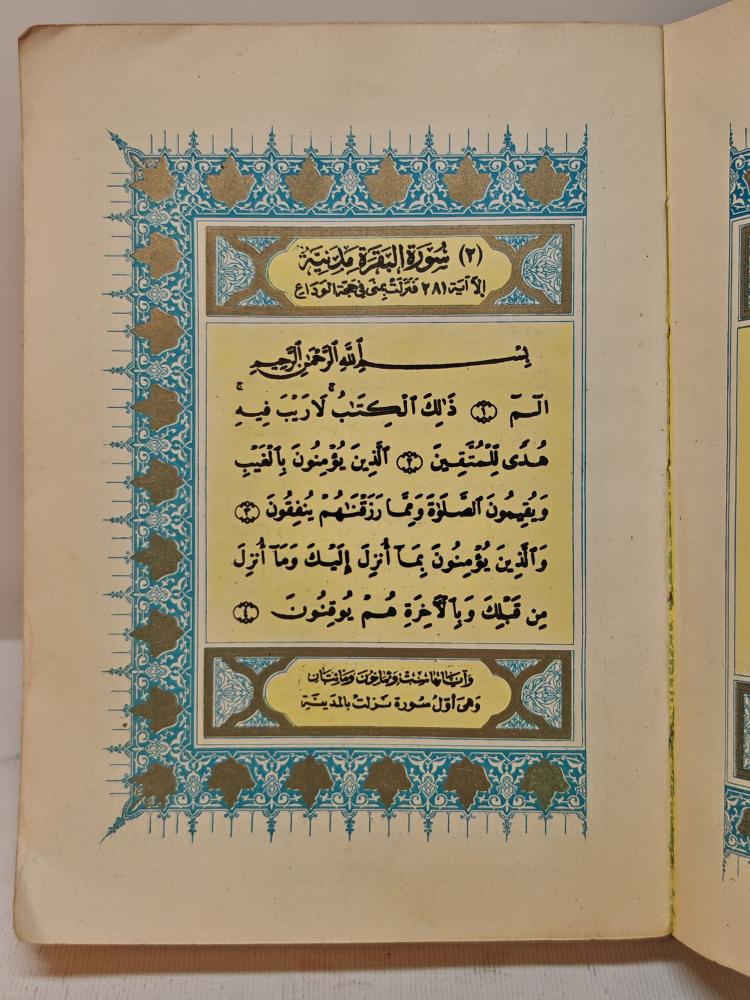 (٢) سُورَةُ البَقَرَةِ مَدَنِيَّة
إلا آية ٢٨١ فنزلت بمنى في حجة الوداع
بِسْمِ ٱللَّهِ ٱلرَّحْمَٰنِ ٱلرَّحِيمِ
الٓمٓ ١ ذَٰلِكَ ٱلْكِتَٰبُ ۛ لَا رَيْبَ فِيهِ ۛ
هُدًى لِّلْمُتَّقِينَ ٢ ٱلَّذِينَ يُؤْمِنُونَ بِٱلْغَيْبِ
وَيُقِيمُونَ ٱلصَّلَوٰةَ وَمِمَّا رَزَقْنَٰهُمْ يُنفِقُونَ ٣
وَٱلَّذِينَ يُؤْمِنُونَ بِمَآ أُنزِلَ إِلَيْكَ وَمَآ أُنزِلَ
مِن قَبْلِكَ وَبِٱلْأٓخِرَةِ هُمْ يُوقِنُونَ ٤
وآياتها ست وثمانون ومائتان
وهي أول سورة نزلت بالمدينة